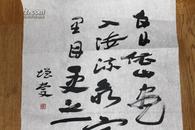 白日依山尽
入海流欲穷
里目更上